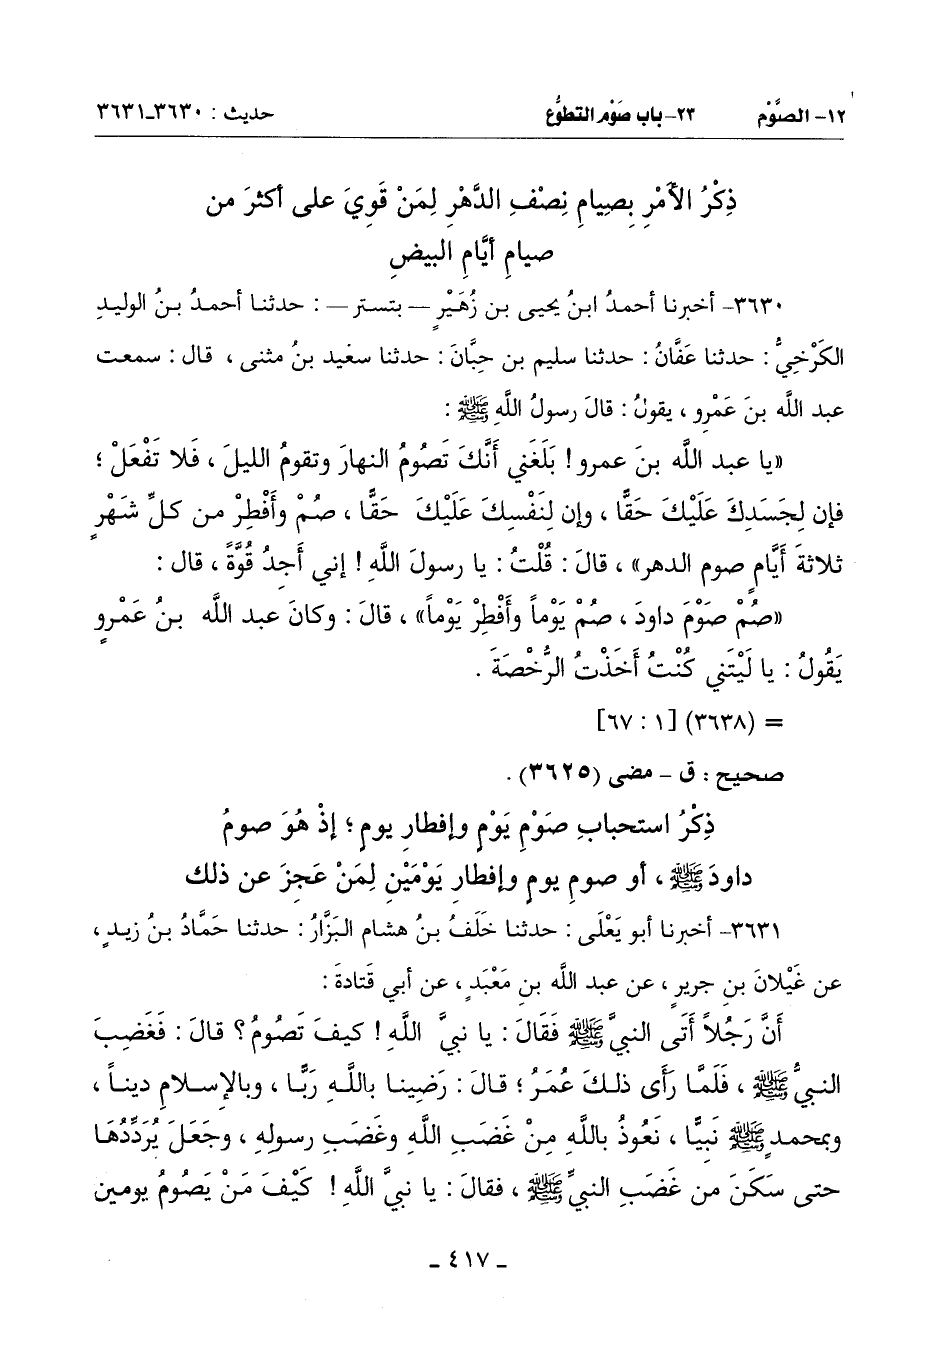 ١٢- الصَّوْم ٢٣- باب صَوْم التطوُّع حديث : ٣٦٣٠-٣٦٣١
ذِكْرُ الأَمْرِ بِصِيامِ نِصْفِ الدَّهْرِ لِمَنْ قَوِيَ على أكثرَ من
صيامِ أيَّامِ البيضِ
٣٦٣٠- أخبرنا أحمدُ ابنُ يحيى بن زُهَيْرٍ – بتستر – : حدثنا أحمدُ بنُ الوليدِ
الكَرْخِيُّ : حدثنا عفَّانُ : حدثنا سليم بن حِبَّانَ : حدثنا سعيد بنُ مثنى ، قال : سمعت
عبد اللَّه بنَ عَمْرو ، يقولُ : قالَ رسولُ اللَّهِ ﷺ :
«يا عبد اللَّه بنَ عمرو ! بَلَغَني أَنَّكَ تَصُومُ النهارَ وتقومُ الليلَ ، فَلا تَفْعَلْ ؛
فإن لِجَسَدِكَ عَلَيْكَ حَقًّا ، وإن لِنَفْسِكَ عَلَيْكَ حَقًّا ، صُمْ وأَفْطِرْ من كلِّ شَهْرٍ
ثلاثةَ أَيَّامٍ صوم الدهر» ، قالَ : قُلْتُ : يا رسولَ اللَّهِ ! إني أَجِدُ قُوَّةً ، قال :
«صُمْ صَوْمَ داودَ ، صُمْ يَوْماً وأَفْطِرْ يَوْماً» ، قالَ : وكانَ عبد اللَّه بنُ عَمْرٍو
يَقُولُ : يا لَيْتَني كُنْتُ أَخَذْتُ الرُّخْصَةَ .
= (٣٦٣٨) [١ : ٦٧]
صحيح : ق - مضى (٣٦٢٥) .
ذِكْرُ استحبابِ صَوْمِ يَوْمٍ وإفطارِ يومٍ ؛ إذْ هُوَ صومُ
داودَ ﷺ ، أو صومِ يومٍ وإفطارِ يَوْمَيْنِ لِمَنْ عَجِزَ عن ذلك
٣٦٣١- أخبرنا أبو يَعْلَى : حدثنا خَلَفُ بنُ هشام البَزَّارُ : حدثنا حَمَّادُ بنُ زيدٍ ،
عن غَيْلانَ بنِ جريرٍ ، عن عبد اللَّه بنِ مَعْبَدٍ ، عن أبي قَتادةَ :
أَنَّ رَجُلاً أَتَى النبيَّ ﷺ فَقَالَ : يا نبيَّ اللَّهِ ! كيفَ تَصُومُ ؟ قالَ : فَغَضِبَ
النبيُّ ﷺ ، فَلَمَّا رَأى ذلكَ عُمَرُ ؛ قالَ : رَضِينا باللَّهِ رَبًّا ، وبالإسلامِ ديناً ،
وبمحمدٍ ﷺ نَبِيًّا ، نَعُوذُ باللَّهِ مِنْ غَضَبِ اللَّهِ وغَضَبِ رسولِهِ ، وجَعَلَ يُرَدِّدُهَا
حتى سَكَنَ من غَضَبِ النبيِّ ﷺ ، فقالَ : يا نبيَّ اللَّهِ ! كَيْفَ مَنْ يَصُومُ يومين
- ٤١٧ -